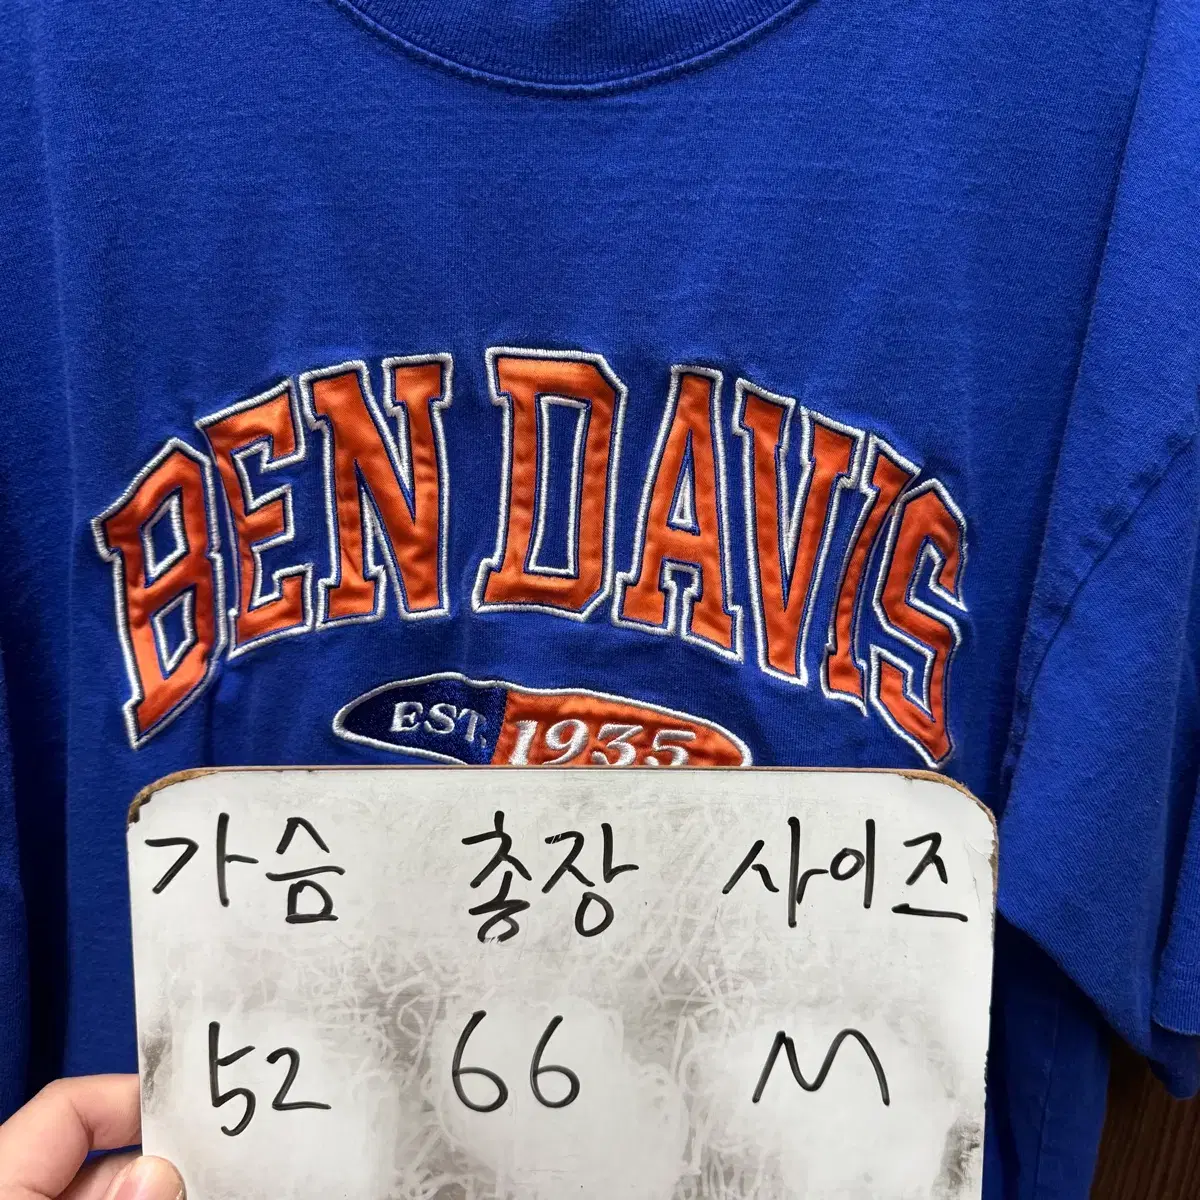 BEN DAVIS
EST. 1935
가슴 총장 사이즈
52 66 M